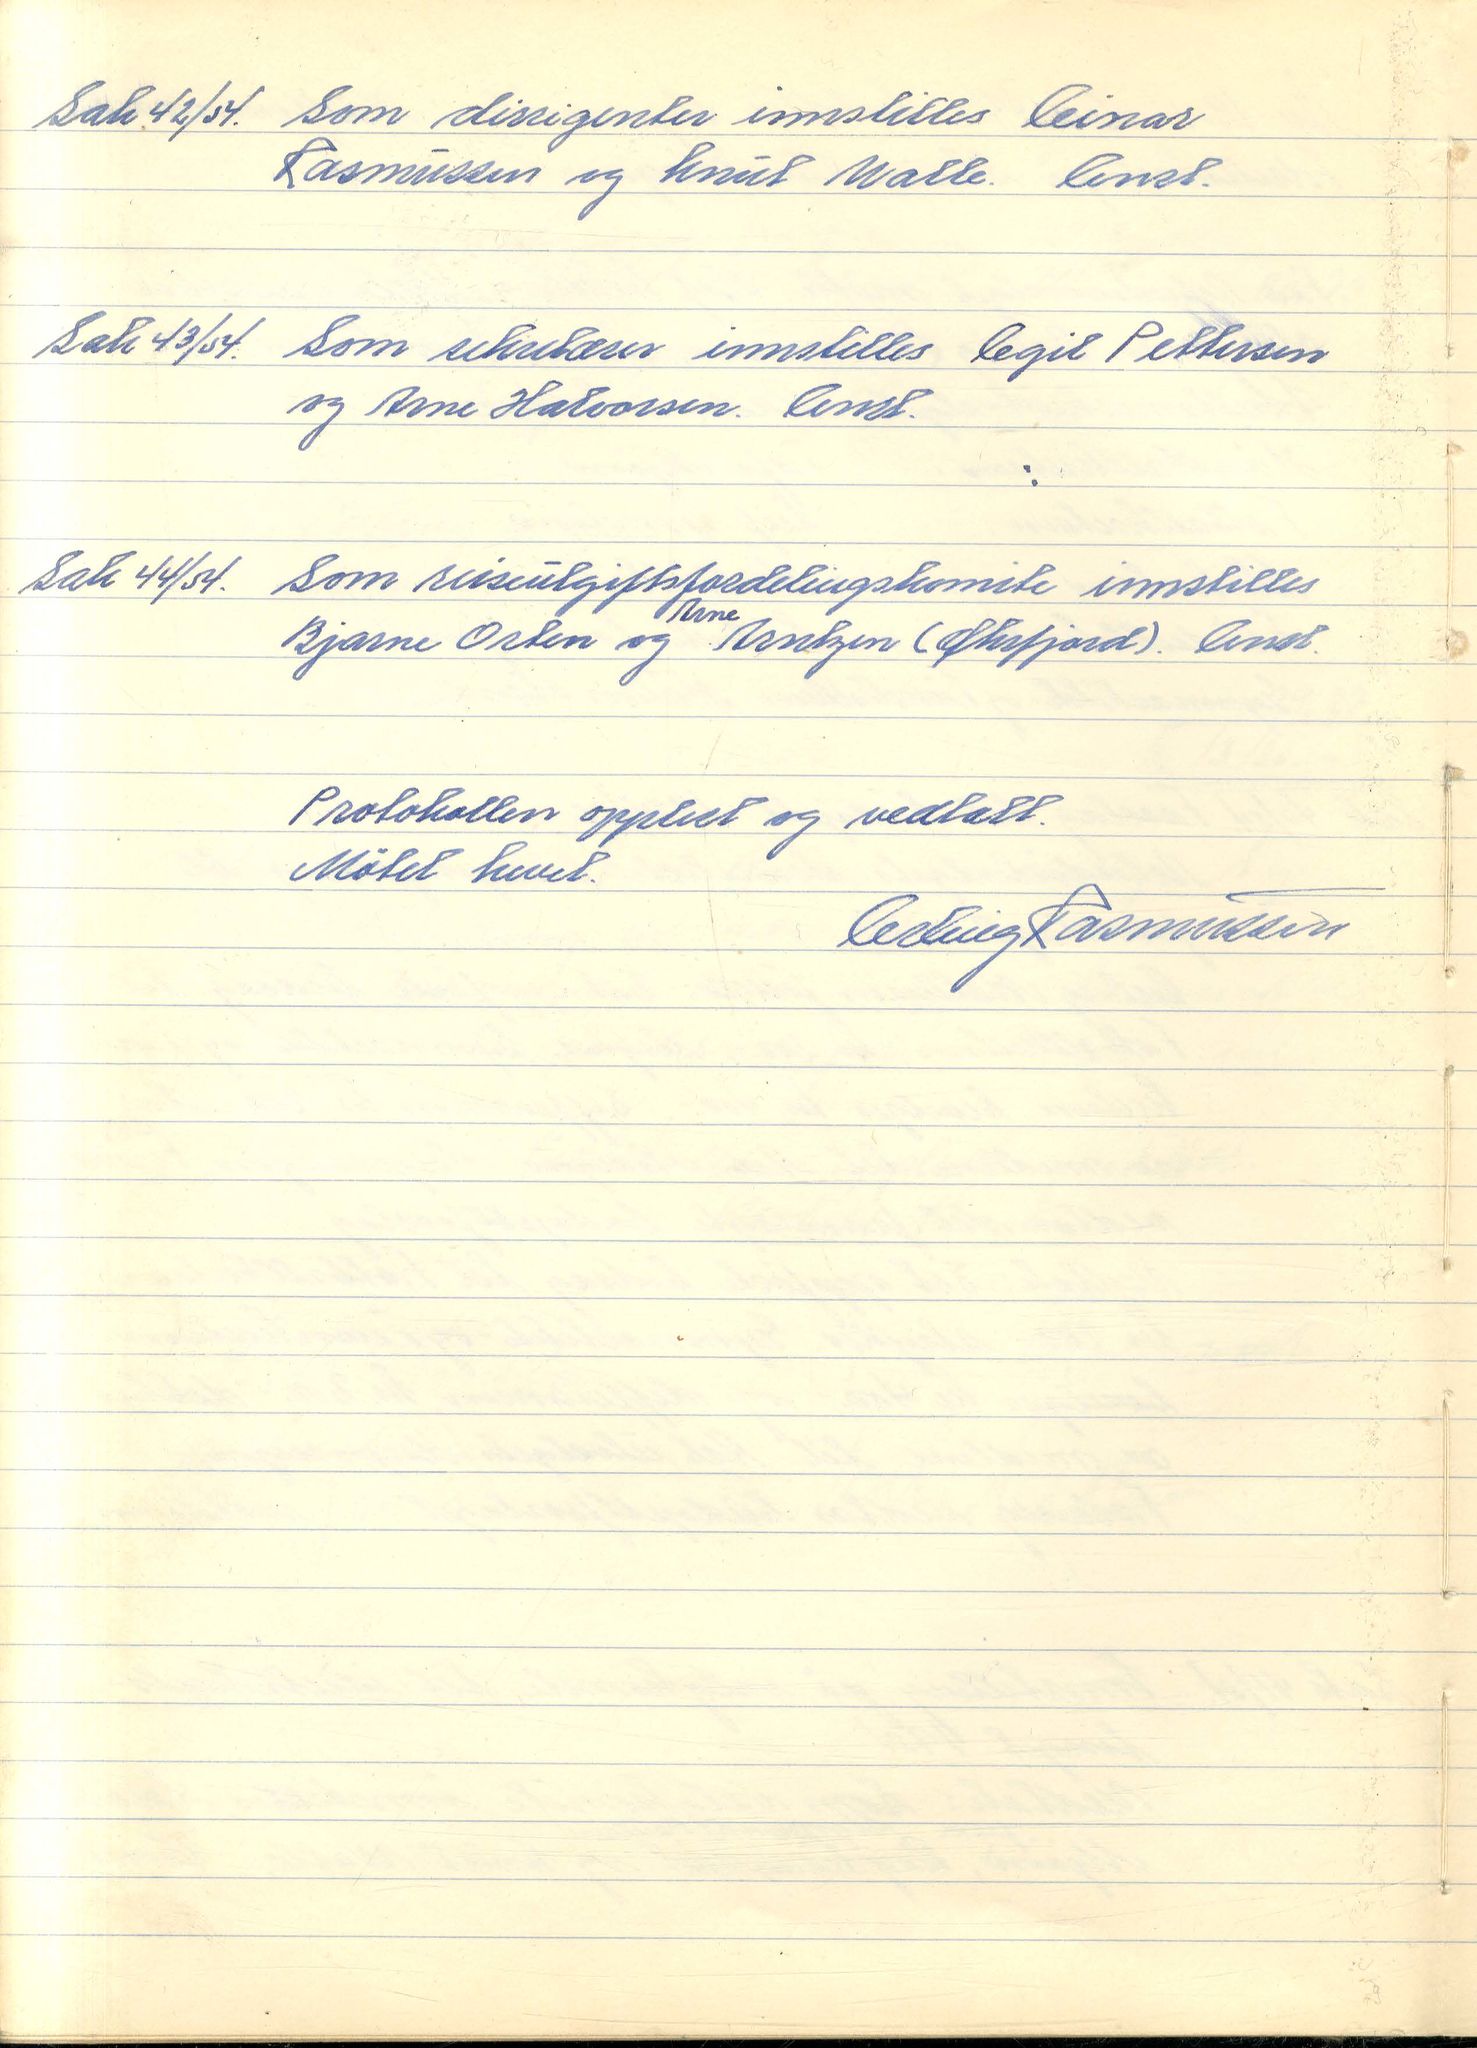 Sak 42/54. Som dirrigenter innstilles Einar
Rasmussen og Knut Walle. Enst.
Sak 43/54. Som sekretærer innstilles Egil Pettersen
og Arne Halvorsen. Enst.
Sak 44/54. Som reiseutgiftsfordelingskomite innstilles
Arne
Bjarne Orten og Arntzen (Øksfjord). Enst.
Protokollen opplest og vedtatt.
Møtet hevet.
Rasmussen